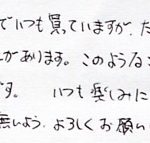 でいつも買っていますが、た
があります。このような
です。 いつも楽しみに
無いよう、よろしくお願い